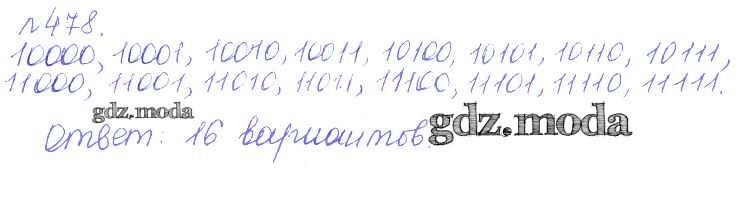 №478.
10000, 10001, 10010, 10011, 10100, 10101, 10110, 10111,
11000, 11001, 11010, 11011, 11100, 11101, 11110, 11111.
gdz.moda
Ответ: 16 вариантов. gdz.moda